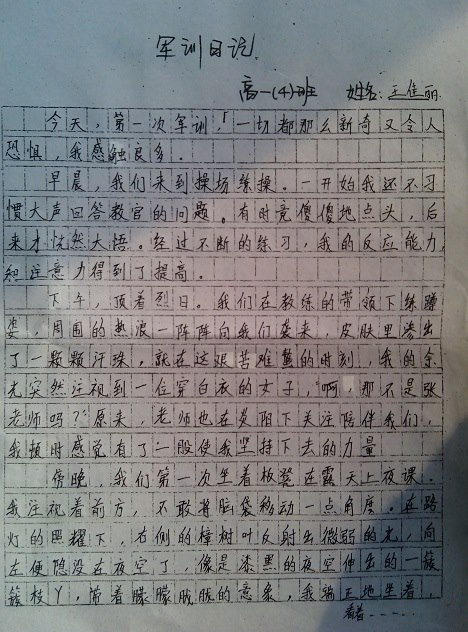 军训日记
高一(4)班 姓名:王佳丽
今天,第一次军训,一切都那么新奇又令人
恐惧,我感触良多.
早晨,我们来到操场练操。一开始我还不习
惯大声回答教官的问题。有时竟傻傻地点头,后
来才恍然大悟。经过不断的练习,我的反应能力
和注意力得到了提高。
下午,顶着烈日。我们在教练的带领下练蹲
姿,周围的热浪一阵阵向我们袭来,皮肤里渗出
了一颗颗汗珠,就在这艰苦难熬的时刻,我的余
光突然注视到一位穿白衣的女子,“啊,那不是张
老师吗?”原来,老师也在炎阳下关注陪伴我们,
我顿时感觉有了一股使我坚持下去的力量
傍晚,我们第一次坐着板凳在露天上夜课。
我注视着前方,不敢将脑袋移动一点角度。在路
灯的照耀下,右侧的樟树叶反射出微弱的光,向
左便隐没在夜空了,像是漆黑的夜空伸出的一簇
簇枝丫,带着朦朦胧胧的意象,我端正地坐着,
看着……